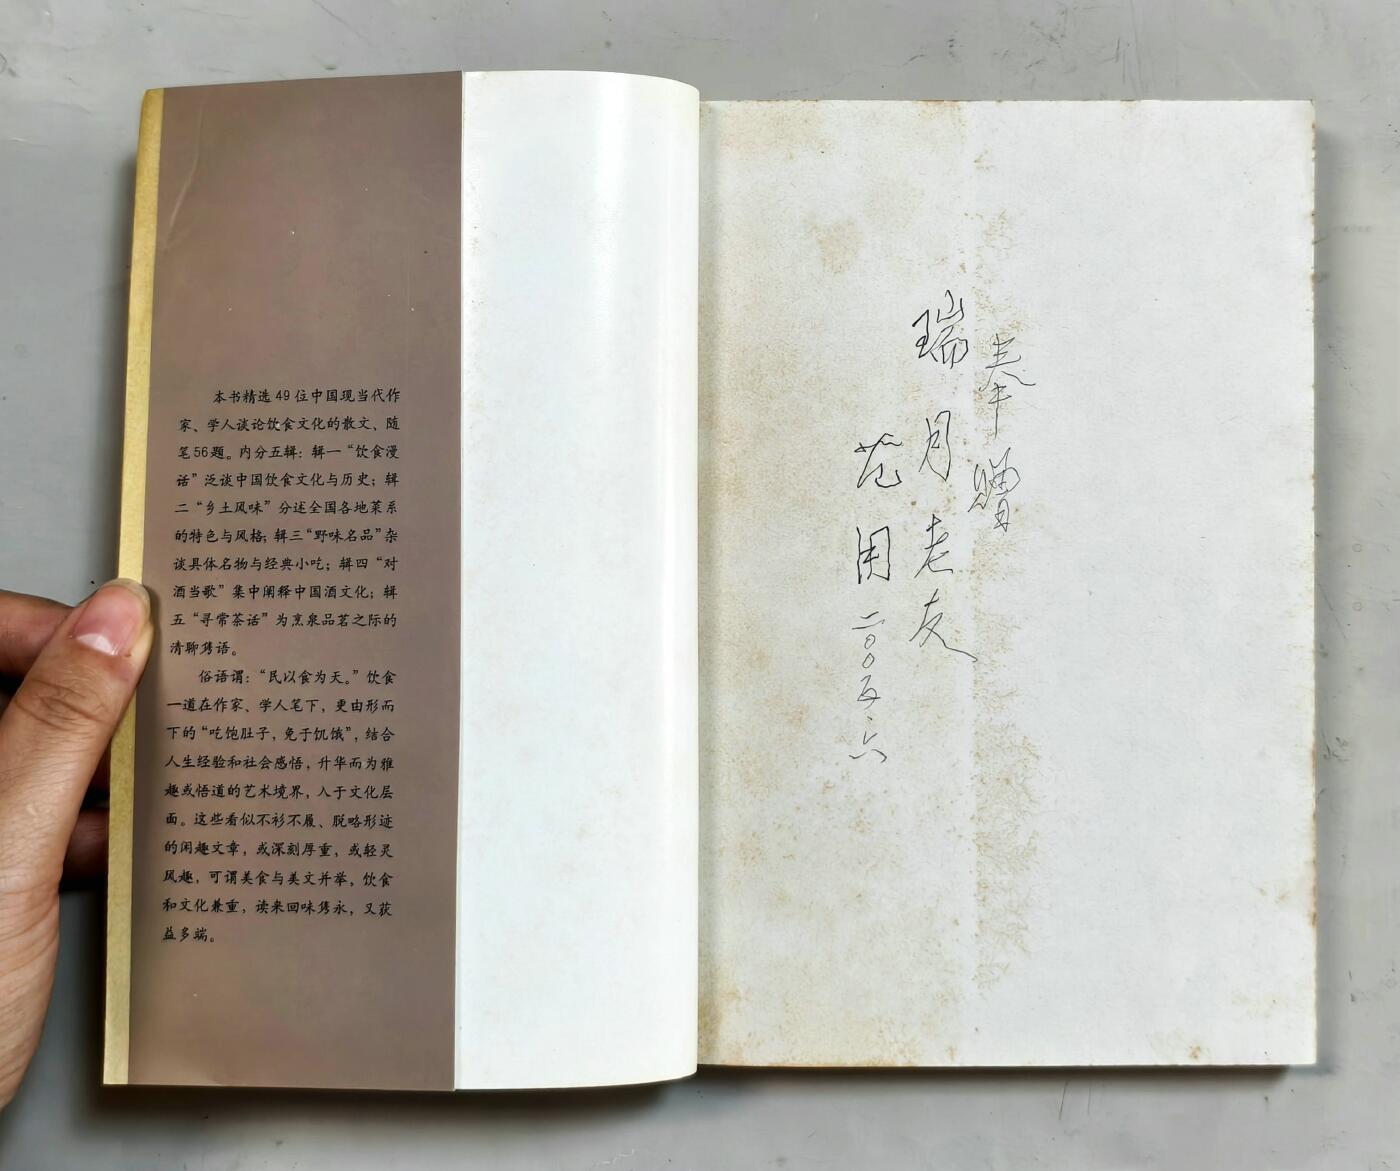 本书精选49位中国现当代作
家、学人谈论饮食文化的散文、随
笔56题。内分五辑：辑一“饮食漫
话”泛谈中国饮食文化与历史；辑
二“乡土风味”分述全国各地菜系
的特色与风格；辑三“野味名品”杂
谈具体名物与经典小吃；辑四“对
酒当歌”集中阐释中国酒文化；辑
五“寻常茶话”为烹泉品茗之际的
清聊隽语。
俗语谓：“民以食为天。”饮食
一道在作家、学人笔下，更由形而
下的“吃饱肚子，免于饥饿”，结合
人生经验和社会感悟，升华而为雅
趣或悟道的艺术境界，入于文化层
面。这些看似不衫不履、脱略形迹
的闲趣文章，或深刻厚重，或轻灵
风趣，可谓美食与美文并举，饮食
和文化兼重，读来回味隽永，又获
益多端。
奉赠
瑞月老友
范用
二〇〇五.六